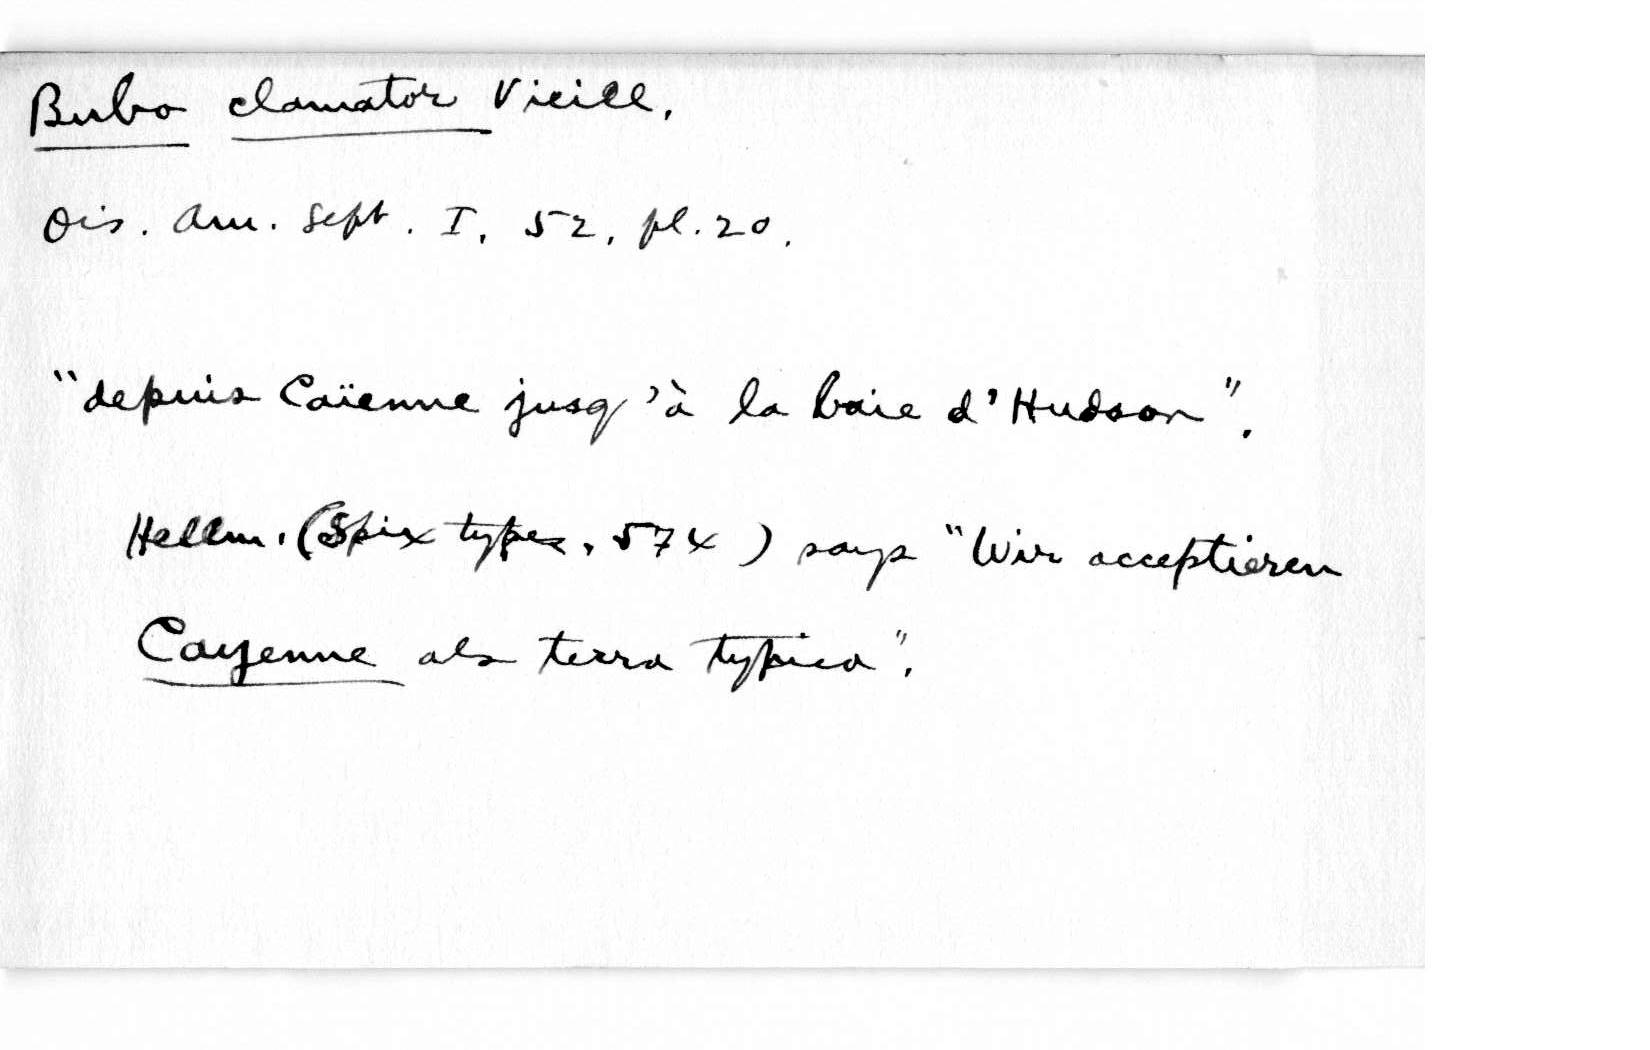 Bubo clamator Vieill.
Ois. Am. Sept. I, 52, pl. 20.
"depuis Caïenne jusq'à la baie d'Hudson".
Hellm. (Spix types, 574) says "Wir acceptieren
Cayenne als terra typica".